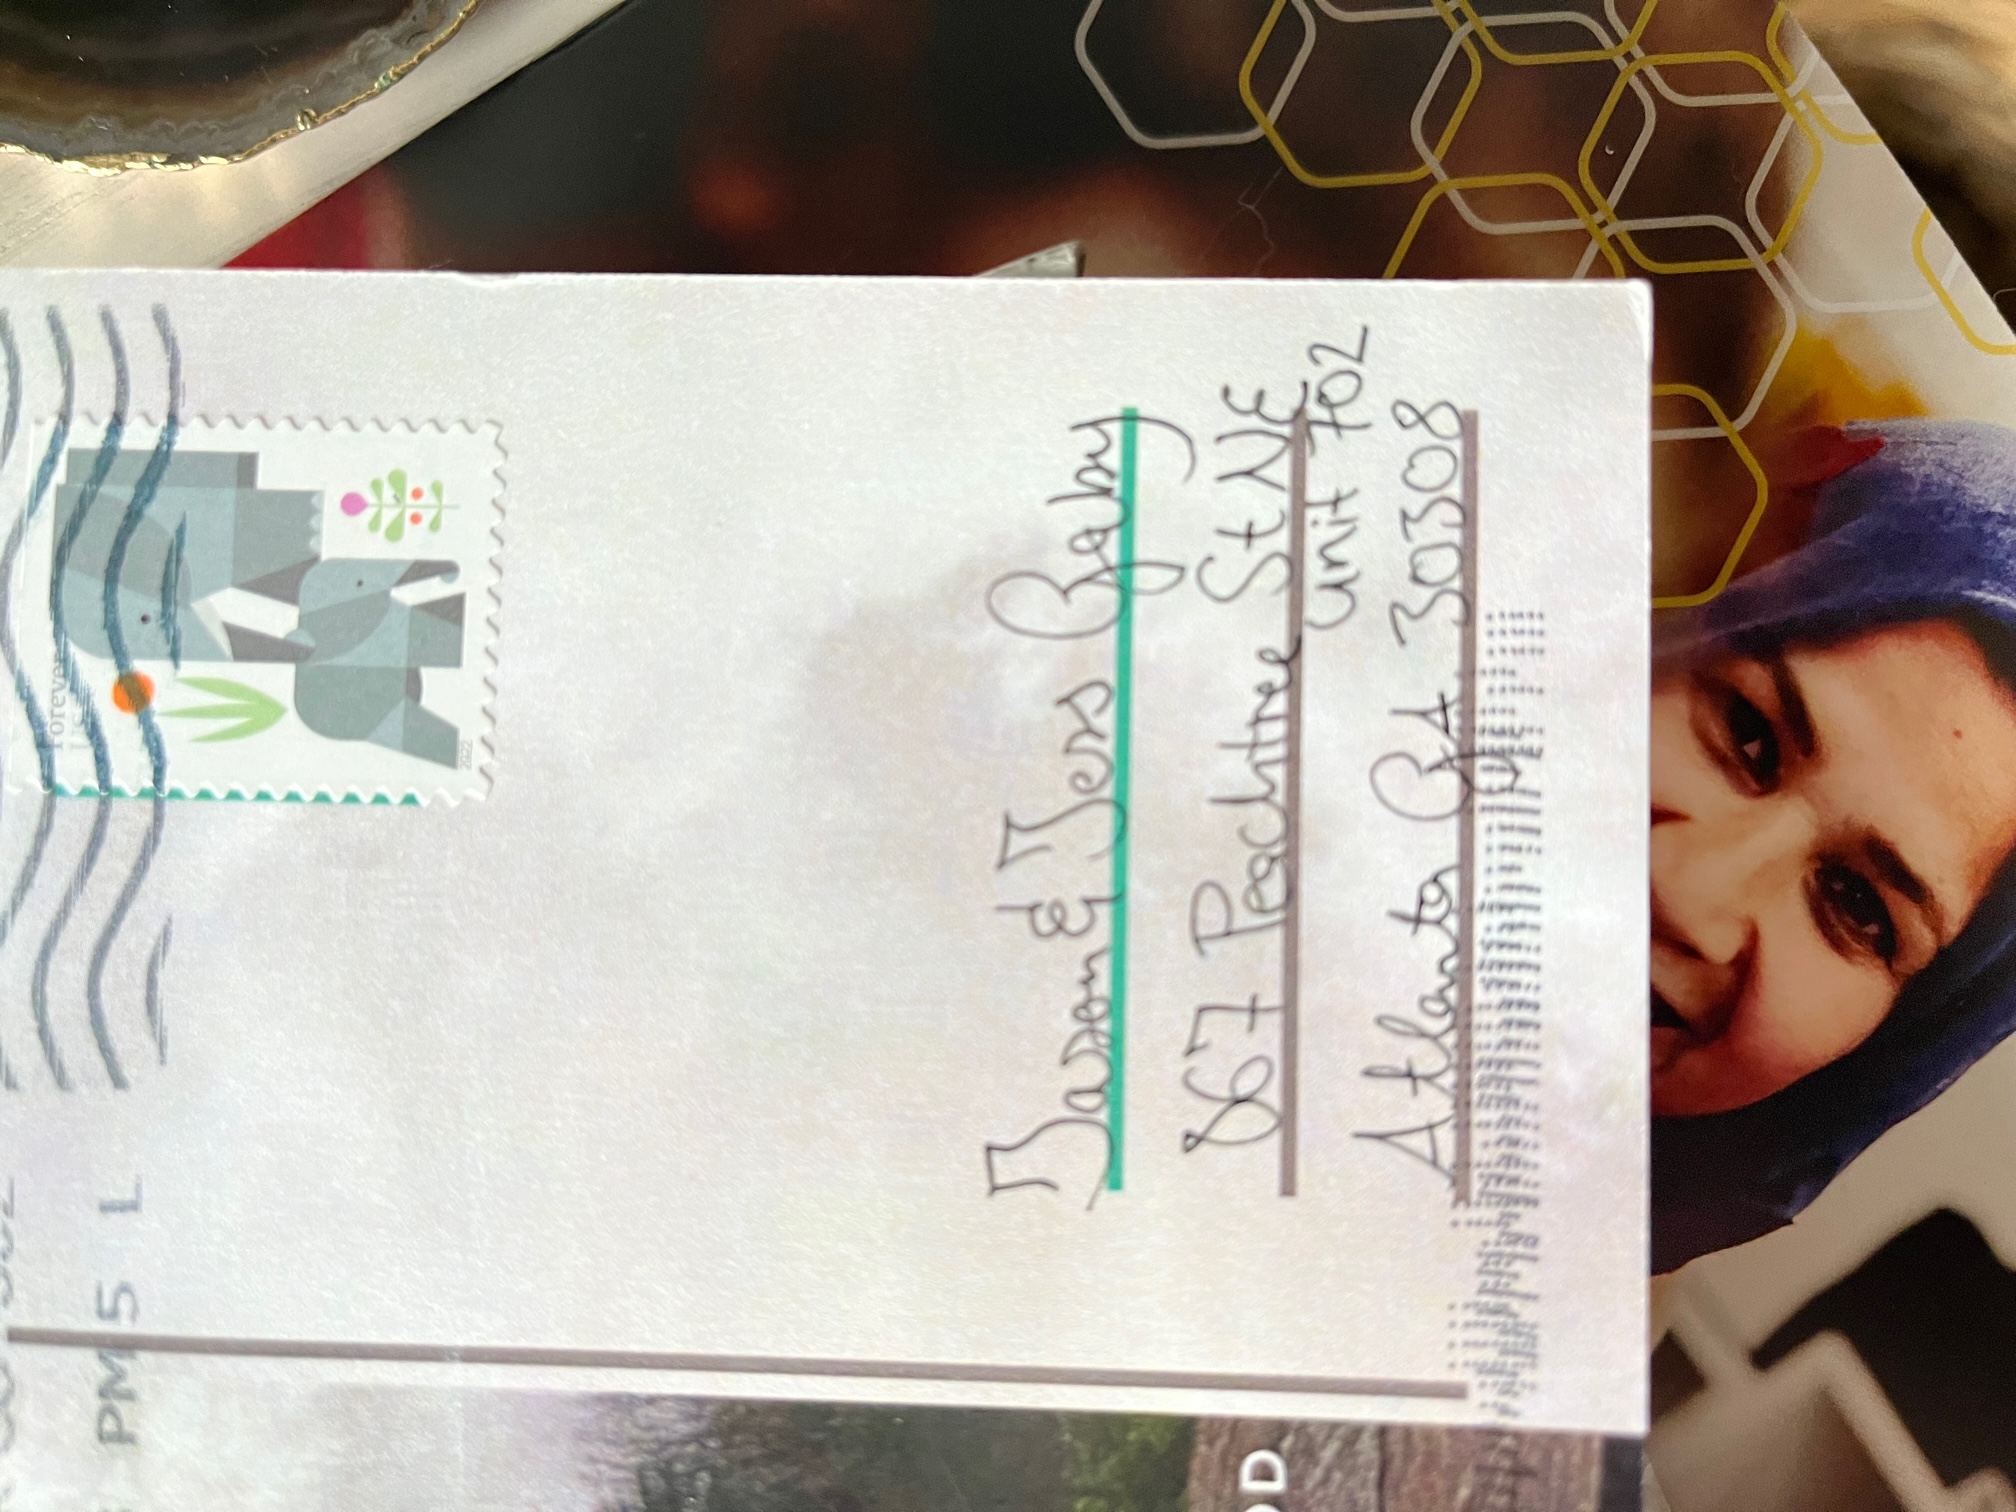 PM 5 L
Forever
2022
Jason & Jess Gaby
867 Peachtree St NE
unit 702
Atlanta GA 30308
OD